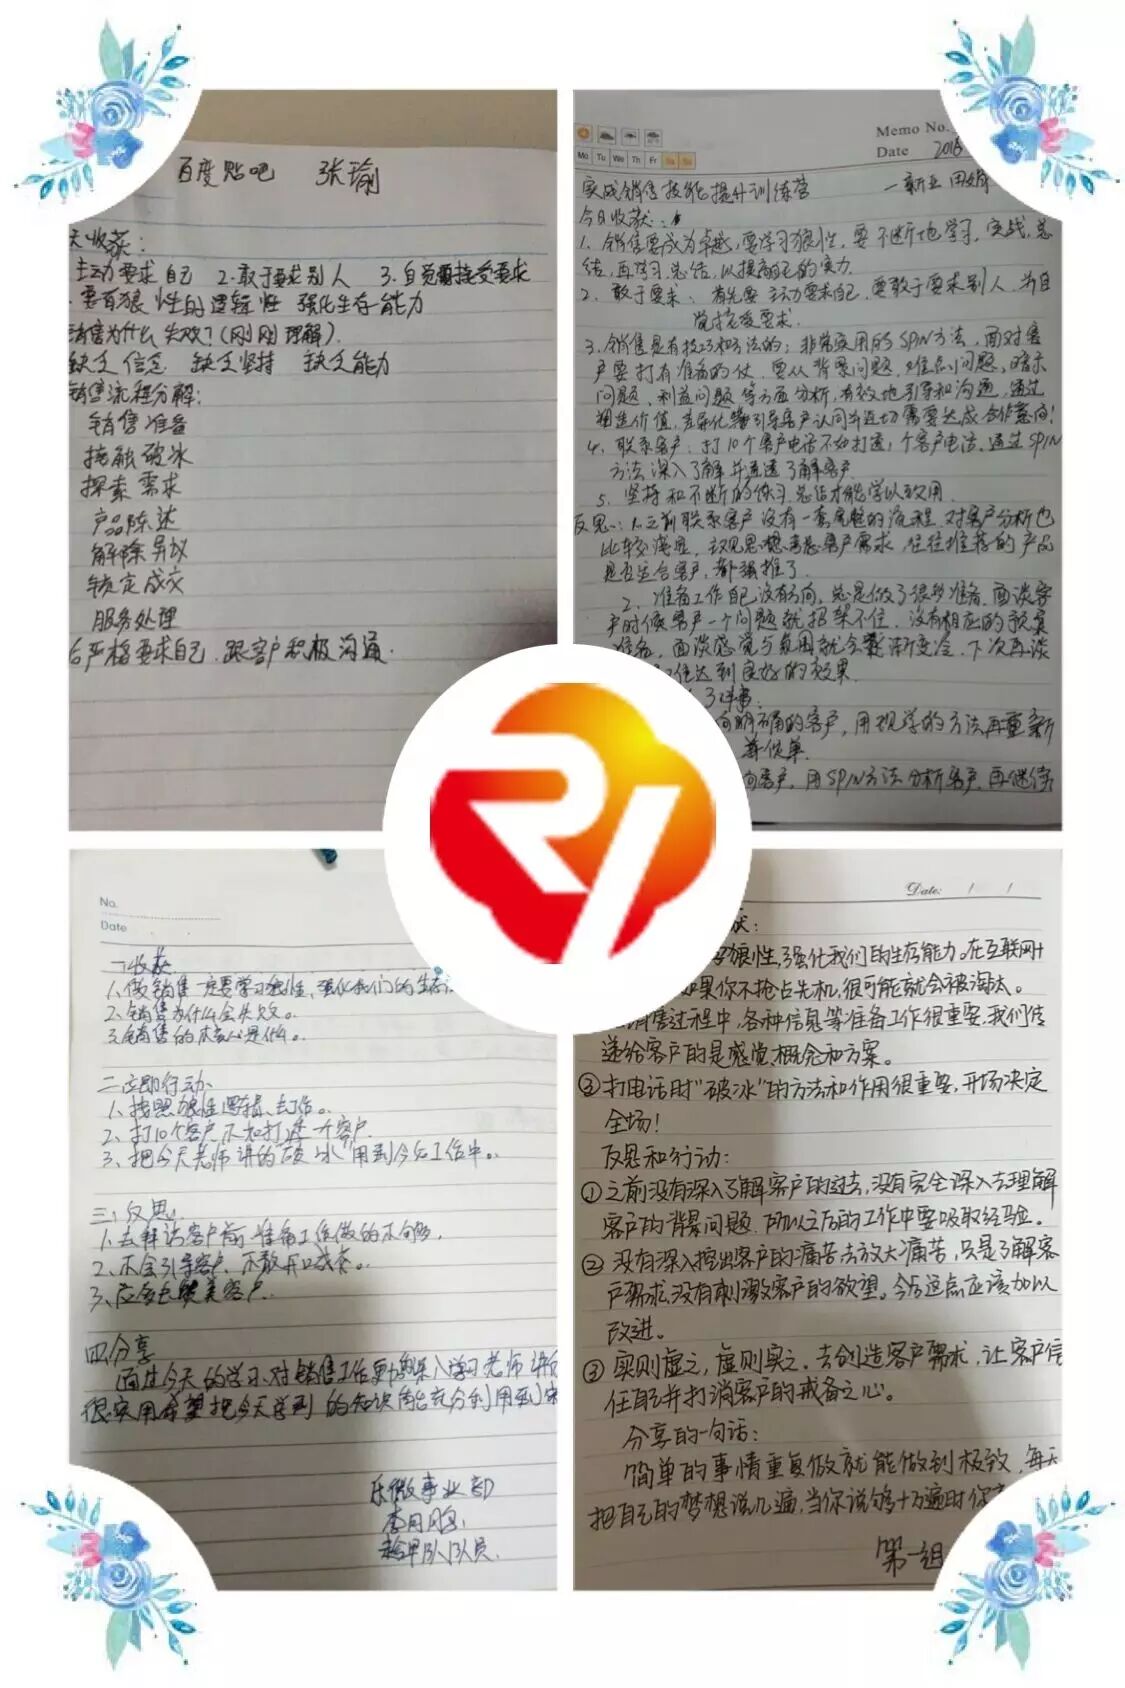 百度贴吧 张瑜
天收获:
主动要求自己 2.敢于要求别人 3.自觉接受要求
要有狼性的逻辑性 强化生存能力
销售为什么失败?(刚刚理解)
缺乏信念 缺乏坚持 缺乏能力
销售流程分解:
销售准备
接触破冰
探索需求
产品陈达
解除异议
锁定成交
服务处理
严格要求自己、跟客户积极沟通.
Memo No.
Mo Tu We Th Fr Sa Su
Date 2018
实战销售技能提升训练营
今日收获:
1、销售要成为卓越,要学习狼性,要不断地学习、实战、总
结,再学习、总结,以提高自己的实力.
2、敢于要求:首先要主动要求自己,要敢于要求别人,为自
觉接受要求.
3、销售是有技巧和方法的:非常实用的SPIN方法,面对客
户要打有准备的仗,要从背景问题、难点问题、暗示
问题、利益问题等方面分析,有效地引导和沟通,通过
塑造价值,差异化引导客户认同并迫切需要达成合作意向!
4、联系客户:打10个客户电话不如打透1个客户电话、通过SPIN
方法深入了解并速速了解客户
5、坚持和不断的练习、总结才能学以致用.
反思:1.之前联系客户没有一套完整的流程,对客户分析也
比较浅显,主观思想考虑客户需求,往往推荐的产品
是否适合客户,都强推了.
2、准备工作自己没有方向,总是做了很多准备,面谈客
户时候客户一个问题就招架不住,没有相应的预案
准备,面谈感觉与氛围就会渐渐变冷,下次再谈
达到良好的效果
3件事:
向明确的客户,用现学的方法再重新
单.
向客户,用SPIN方法分析客户,再继续
No.
Date
一、收获
1、做销售一定要学习狼性、强化我们的生存
2、销售为什么会失败。
3、销售的核心是什么。
二、立即行动、
1、按照狼性逻辑、去工作。
2、打10个客户,不如打透一个客户
3、把今天老师讲的破"冰"用到今后工作中。
三、反思、
1、去拜访客户前准备工作做的不够多,
2、不会引导客户、不敢开口成交。
3、应多去赞美客户.
四分享
通过今天的学习、对销售工作更深入学习老师讲的
很实用希望把今天学到的知识能充分利用到
乐微事业部
队队员.
Date: / /
狼性,强化我们的生存能力。在互联网+
如果你不抢占先机,很可能就会被淘汰。
销售过程中,各种信息等准备工作很重要,我们传
递给客户的是感觉、概念和方案。
③打电话时"破冰"的方法和作用很重要,开场决定
全场!
反思和行动:
①之前没有深入了解客户的过去,没有完全深入去理解
客户的背景问题,所以之后的工作中要吸取经验。
②没有深入挖出客户的痛苦去放大痛苦,只是了解客
户需求,没有刺激客户的欲望。今后这点应该加以
改进。
③实则虚之,虚则实之,去创造客户需求,让客户信
任自己并打消客户的戒备之心。
分享的一句话:
简单的事情重复做就能做到极致,每天
把自己的梦想说几遍,当你说够十万遍时,你
第一组